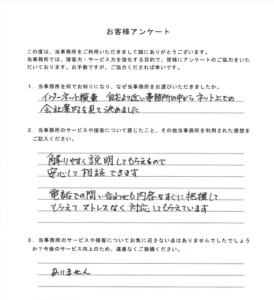 お客様アンケート
この度は、当事務所をご利用いただきまして誠にありがとうございます。
当事務所では、接客力・サービス力を強化する目的で、皆様にアンケートのご協力をいた
だいております。お手数ですが、ご協力くだされば幸いです。
1．当事務所を何でお知りになり、なぜ当事務所をお選びいただきましたか。
インターネット検索 自宅より近い事務所の中からネット上での
会社案内を見て決めました
2．当事務所のサービスや接客について感じたこと、その他当事務所を利用された感想を
ご記入ください。
解りやすく説明してもらえるので
安心して相談できます
電話での問い合わせも内容をすぐに把握して
もらえてストレスなく対応してもらえています
3．当事務所のサービスや接客についてお気に召さない点はありませんでしたでしょう
か？今後のサービス向上のため、遠慮なくご指摘ください。
ありません